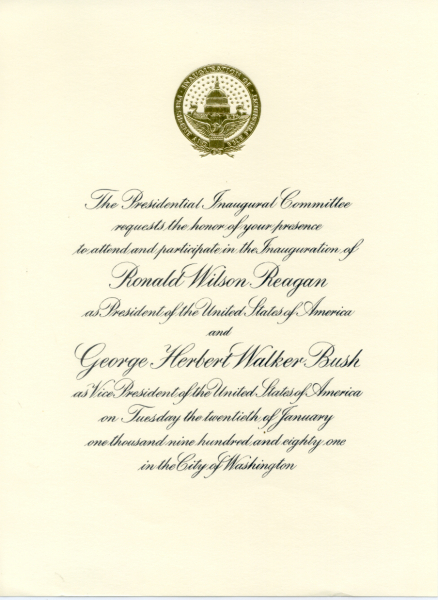 THE INAUGURATION OF
The Presidential Inaugural Committee
requests the honor of your presence
to attend and participate in the Inauguration of
Ronald Wilson Reagan
as President of the United States of America
and
George Herbert Walker Bush
as Vice President of the United States of America
on Tuesday the twentieth of January
one thousand nine hundred and eighty one
in the City of Washington